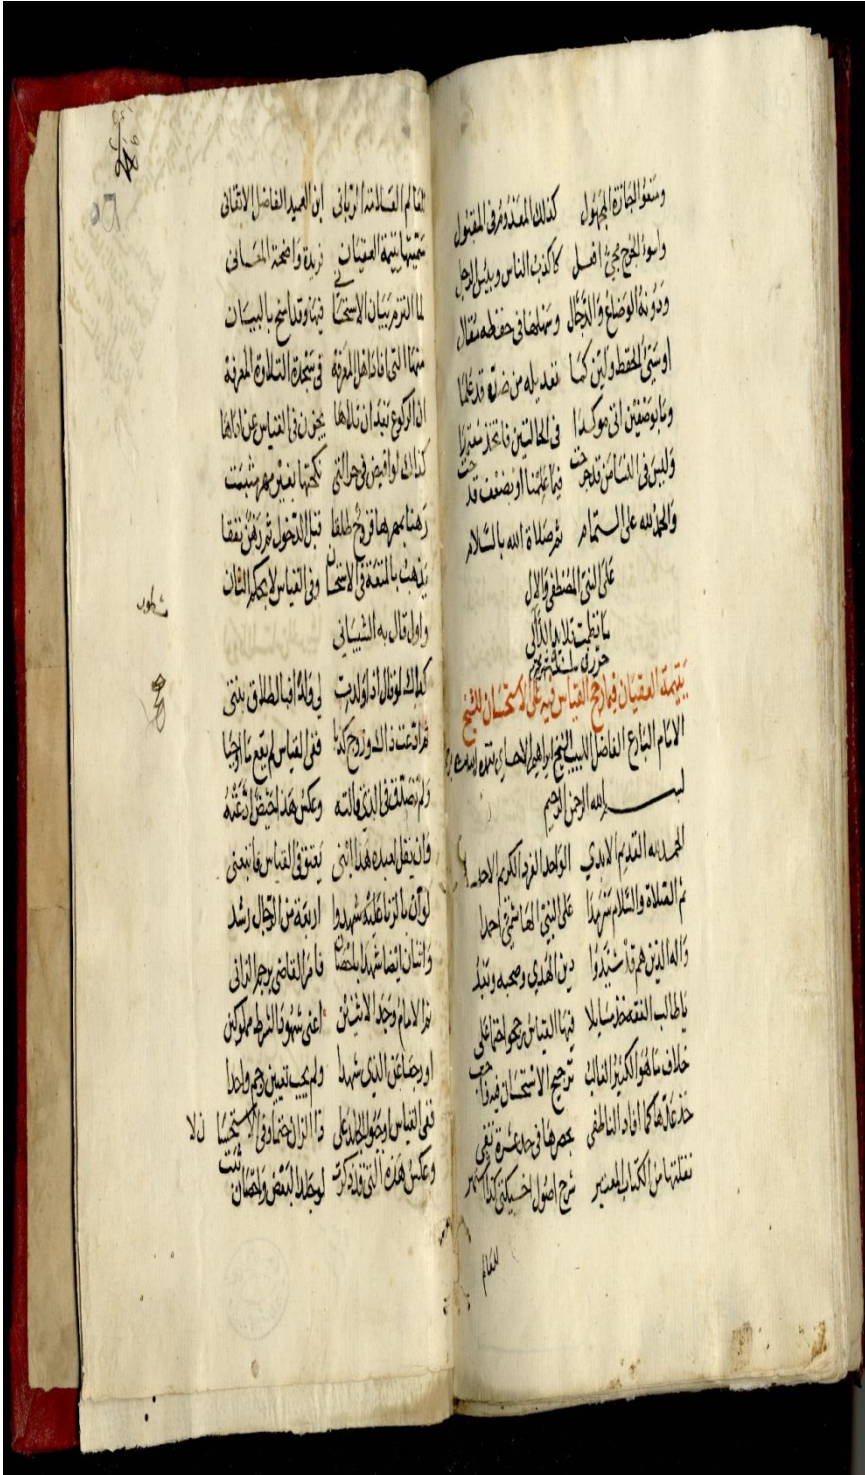 ومنعوا اجازة المجهول كذلك المعدوم في المقبول
واسوء الجرح يجئ افعل كاكذب الناس وبئس الرجل
ودونه الوضاع والدجال وسهلها في حفظه مقال
اوسيئ الحفظ ولين كما تعديله من ضده قد علما
وما بوصفين اتى موكدا في الحالتين فاتخذ معتمدا
وليس في النسا من قد جرحت فيما علمنا او بضعف قد
والحمد لله على التمام ثم صلاة الله بالسلام
على النبي المصطفى والال
ما نظمت قلايد اللآلي
يتيمة العقيان فيما رجح القياس فيه على الاستحسان للشيخ
الامام البارع الفاضل اللبيب الشيخ ابراهيم الاحسائي
بسم الله الرحمن الرحيم
الحمد لله القديم الابدي الواحد الفرد الكريم الاحد
ثم الصلاة والسلام سرمدا على النبي الهاشمي احمدا
واله الذين هم قد شيدوا دين الهدى وصحبه
يا طالب الفقه خذ مسايلا فيها القياس رجحوا على
خلاف ما هو الكثير الغالب ترجيح الاستحسان فيه
خذ عدها كما افاد الناطفي بحصرها في عشرة
نقلتها من الكتاب المعتبر شرح اصول اخسيكتي كذا
للعالم
للعالم العلامة الرباني ابن العميد الفاضل الاتقاني
سميتها يتيمة العقيان فريدة واضحة المعاني
لما التزم ببيان الاستحسا في فيها وقد بالبيان
منها التي افاد اهل المعرفة في سجدة التلاوة المعرفة
ان الركوع بعد ان تلاها يجزئ في القياس عن اداها
كذاك لو التي نكحتها بغير مهر مثبت
رهنا بمهرها فزوج طلقا قبل الدخول ثم رهن نفقا
يذهب بالمتعة في الاستحسان وفي القياس لا بحكم الثان
واول قال به الشيباني
كذلك لو قال اذا ولدت لي ولدا فبالطلاق بنتي
ثم ادعت ذاك وزوج كذبا ففي القياس لم يقع ما اوجبا
ولم تصدق في الذي قالته وعكس هذا حيض ادعته
وان يقل لعبده هذا ابني يعتق في القياس فاتبعني
لو ان بالزنا عليه شهدوا اربعة من الرجال رشد
واثنان ايضا شهدا باحصان فامر القاضي برجم الزاني
ثم الامام وجد الاثنين اعني شهود الشرط مملوكين
او رجعا عن الذي شهدا ولم يجب تعيين رجم واحدا
ففي القياس اوجبوا الجلد على ذا الزان حتما وفي الاستحسان لا
وعكس هذه التي قد ذكرت لو جلد البعض واحصان ثبت